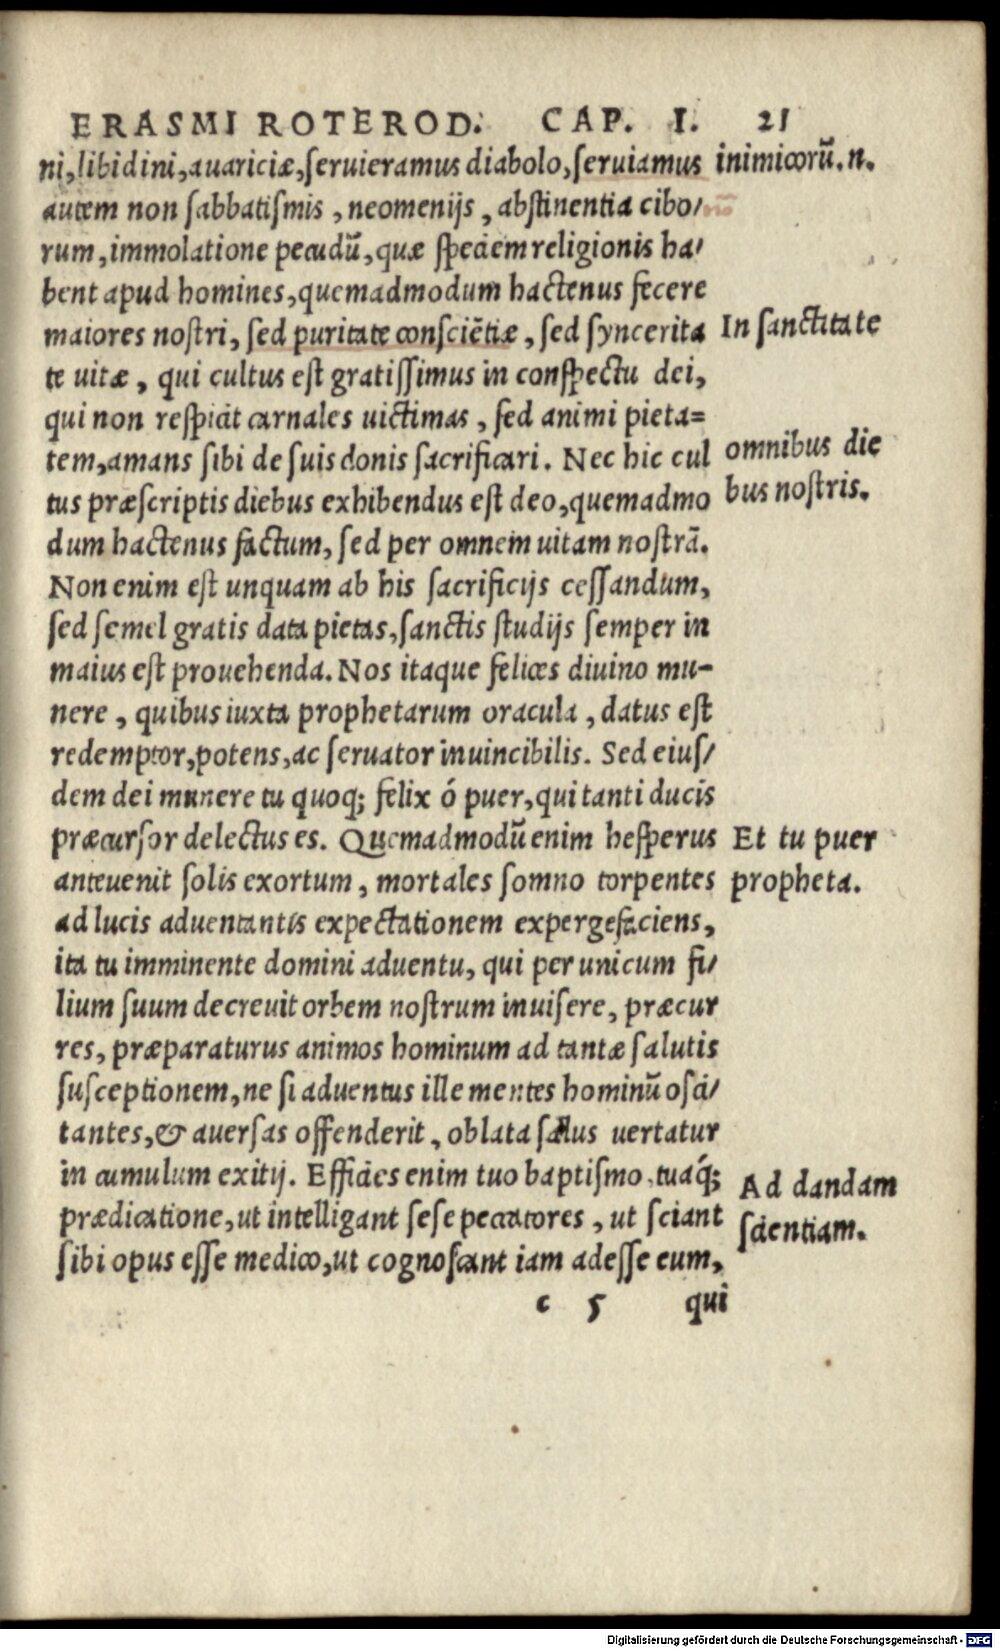 ERASMI ROTEROD. CAP. I. 21
ni, libidini, auariciæ, seruieramus diabolo, seruiamus
inimicorū. n.
autem non sabbatismis, neomenijs, abstinentia cibo/
rum, immolatione pecudū, quæ speciem religionis ha/
bent apud homines, quemadmodum hactenus fecere
maiores nostri, sed puritate consciētiæ, sed syncerita
In sanctitate
te uitæ, qui cultus est gratissimus in conspectu dei,
qui non respicit carnales uictimas, sed animi pieta=
tem, amans sibi de suis donis sacrificari. Nec hic cul
omnibus die
tus præscriptis diebus exhibendus est deo, quemadmo
bus nostris.
dum hactenus factum, sed per omnem uitam nostrā.
Non enim est unquam ab his sacrificijs cessandum,
sed semel gratis data pietas, sanctis studijs semper in
maius est prouehenda. Nos itaque felices diuino mu-
nere, quibus iuxta prophetarum oracula, datus est
redemptor, potens, ac seruator inuincibilis. Sed eius/
dem dei munere tu quoq; felix ó puer, qui tanti ducis
præcursor delectus es. Quemadmodū enim hesperus
Et tu puer
anteuenit solis exortum, mortales somno torpentes
propheta.
ad lucis aduentantis expectationem expergefaciens,
ita tu imminente domini aduentu, qui per unicum fi/
lium suum decreuit orbem nostrum inuisere, præcur
res, præparaturus animos hominum ad tantæ salutis
susceptionem, ne si aduentus ille mentes hominū osci/
tantes, & auersas offenderit, oblata salus uertatur
in cumulum exitij. Efficies enim tuo baptismo, tuaq́;
Ad dandam
prædicatione, ut intelligant sese peccatores, ut sciant
scientiam.
sibi opus esse medico, ut cognoscant iam adesse eum,
c 5 qui
Digitalisierung gefördert durch die Deutsche Forschungsgemeinschaft - DFG